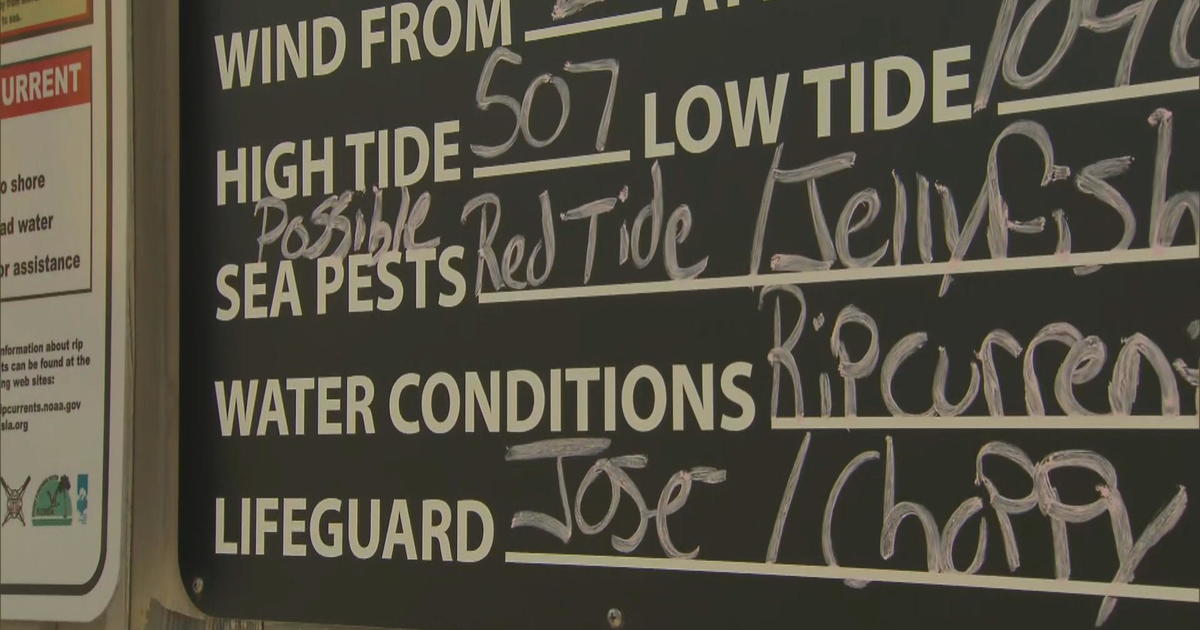 WIND FROM
HIGH TIDE 507 LOW TIDE
Possible
SEA PESTS Red Tide / Jellyfish
WATER CONDITIONS Ripcurren
LIFEGUARD Jose / Choppy
URRENT
o shore
ad water
or assistance
nformation about rip
ts can be found at the
ng web sites:
ipcurrents.noaa.gov
sla.org